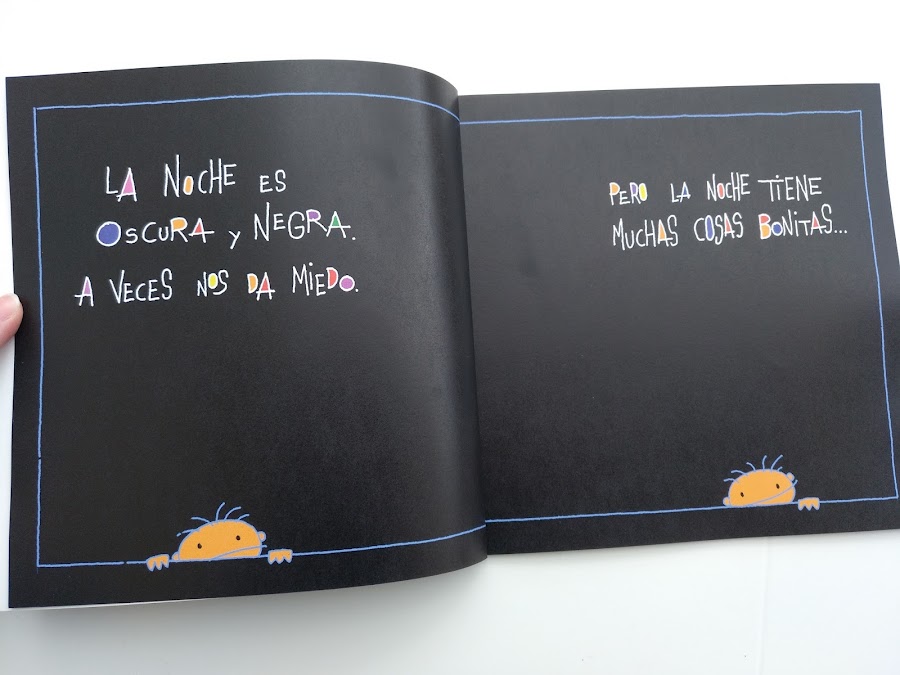 LA NOCHE ES
OSCURA Y NEGRA.
A VECES NOS DA MIEDO.
PERO LA NOCHE TIENE
MUCHAS COSAS BONITAS...